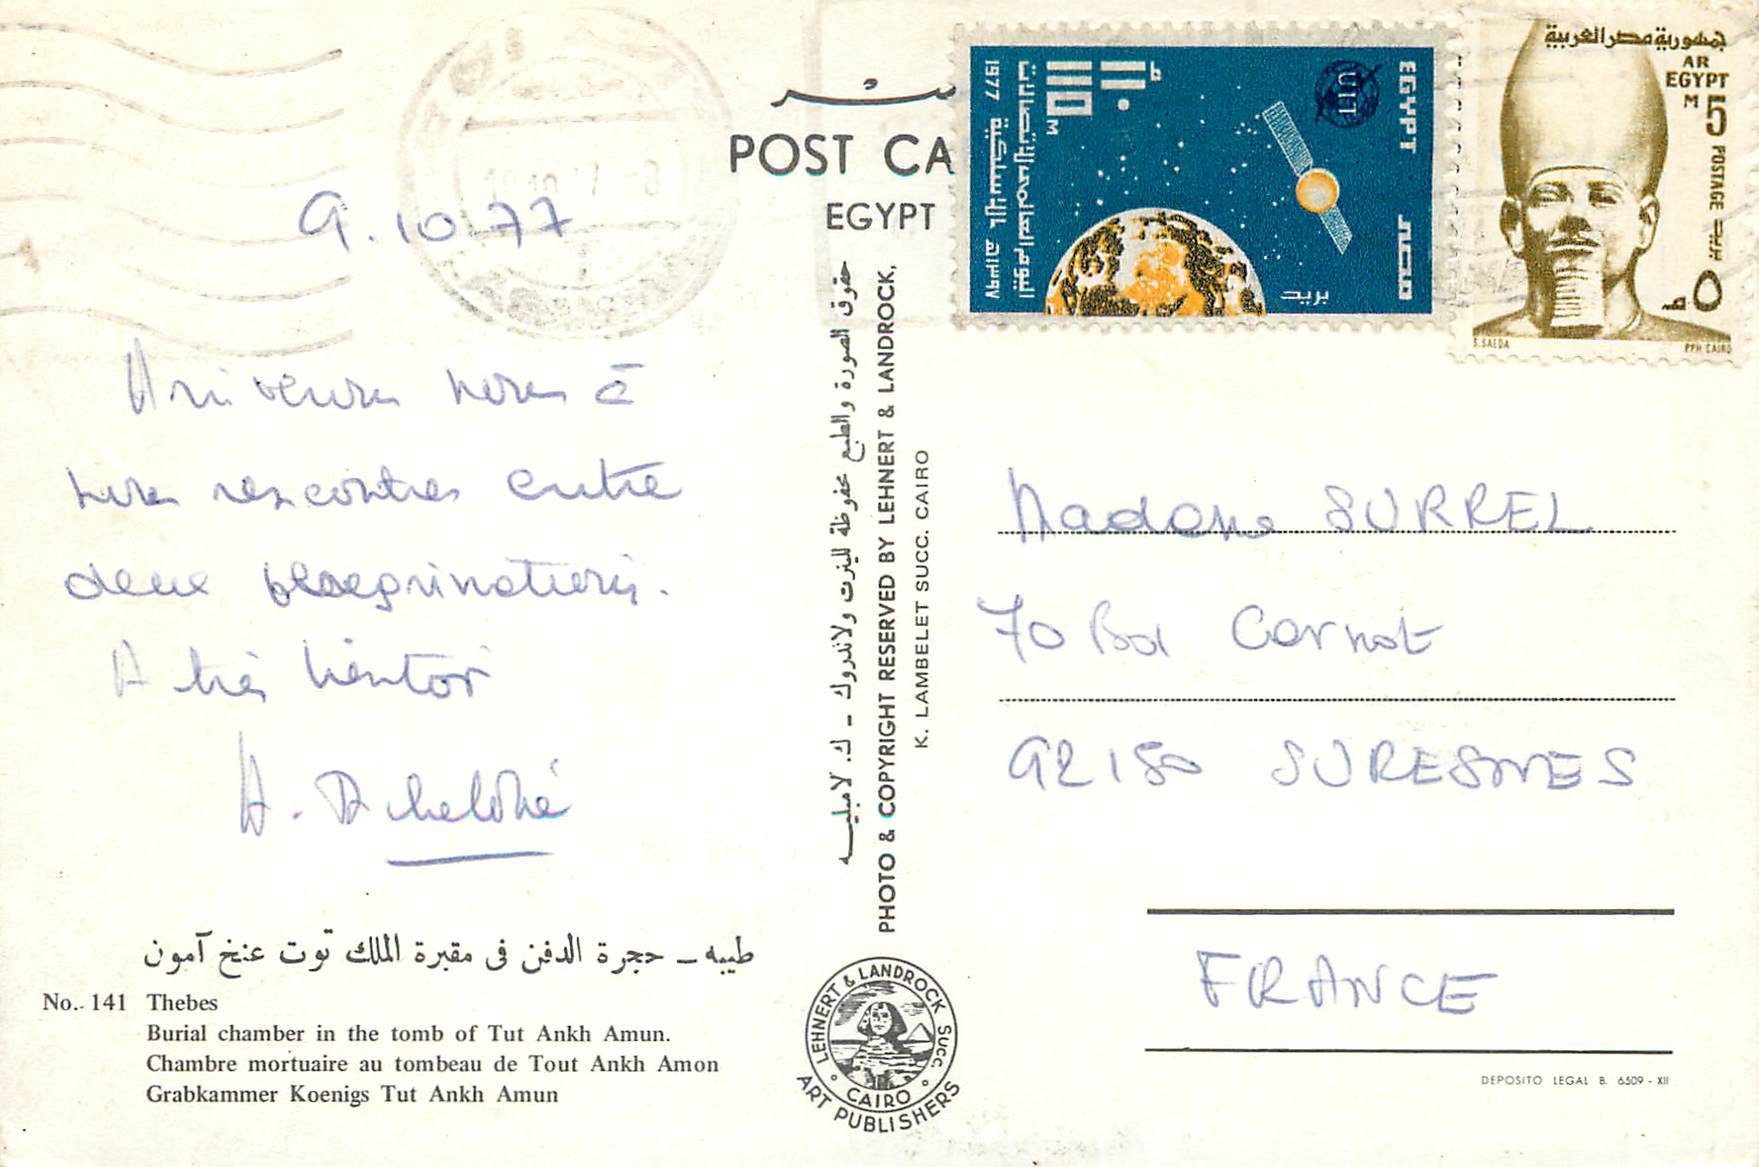 9.10.77
Arriverons nous à
nous rencontrer entre
deux pérégrinations.
A très bientôt
مصر
POST CA
EGYPT
حقوق الصورة والطبع محفوظة للينرت ولاندروك - ك. لامبليه
PHOTO & COPYRIGHT RESERVED BY LEHNERT & LANDROCK,
K. LAMBELET SUCC. CAIRO
EGYPT
مصر
UIT
بريد
110 M
١١٠ م
اليوم العالمى للاتصالات
السلكية
1977
١٣٩٧
جمهورية مصر العربية
AR
EGYPT
M 5
POSTAGE بريد
٥ م
S. SAEDA
PPH CAIRO
Madame SURREL
70 Bd Carnot
92150 SURESNES
FRANCE
DEPOSITO LEGAL B. 6509 - XII
طيبه - حجرة الدفن فى مقبرة الملك توت عنخ آمون
No. 141 Thebes
Burial chamber in the tomb of Tut Ankh Amun.
Chambre mortuaire au tombeau de Tout Ankh Amon
Grabkammer Koenigs Tut Ankh Amun
LEHNERT & LANDROCK SUCC.
CAIRO
ART PUBLISHERS